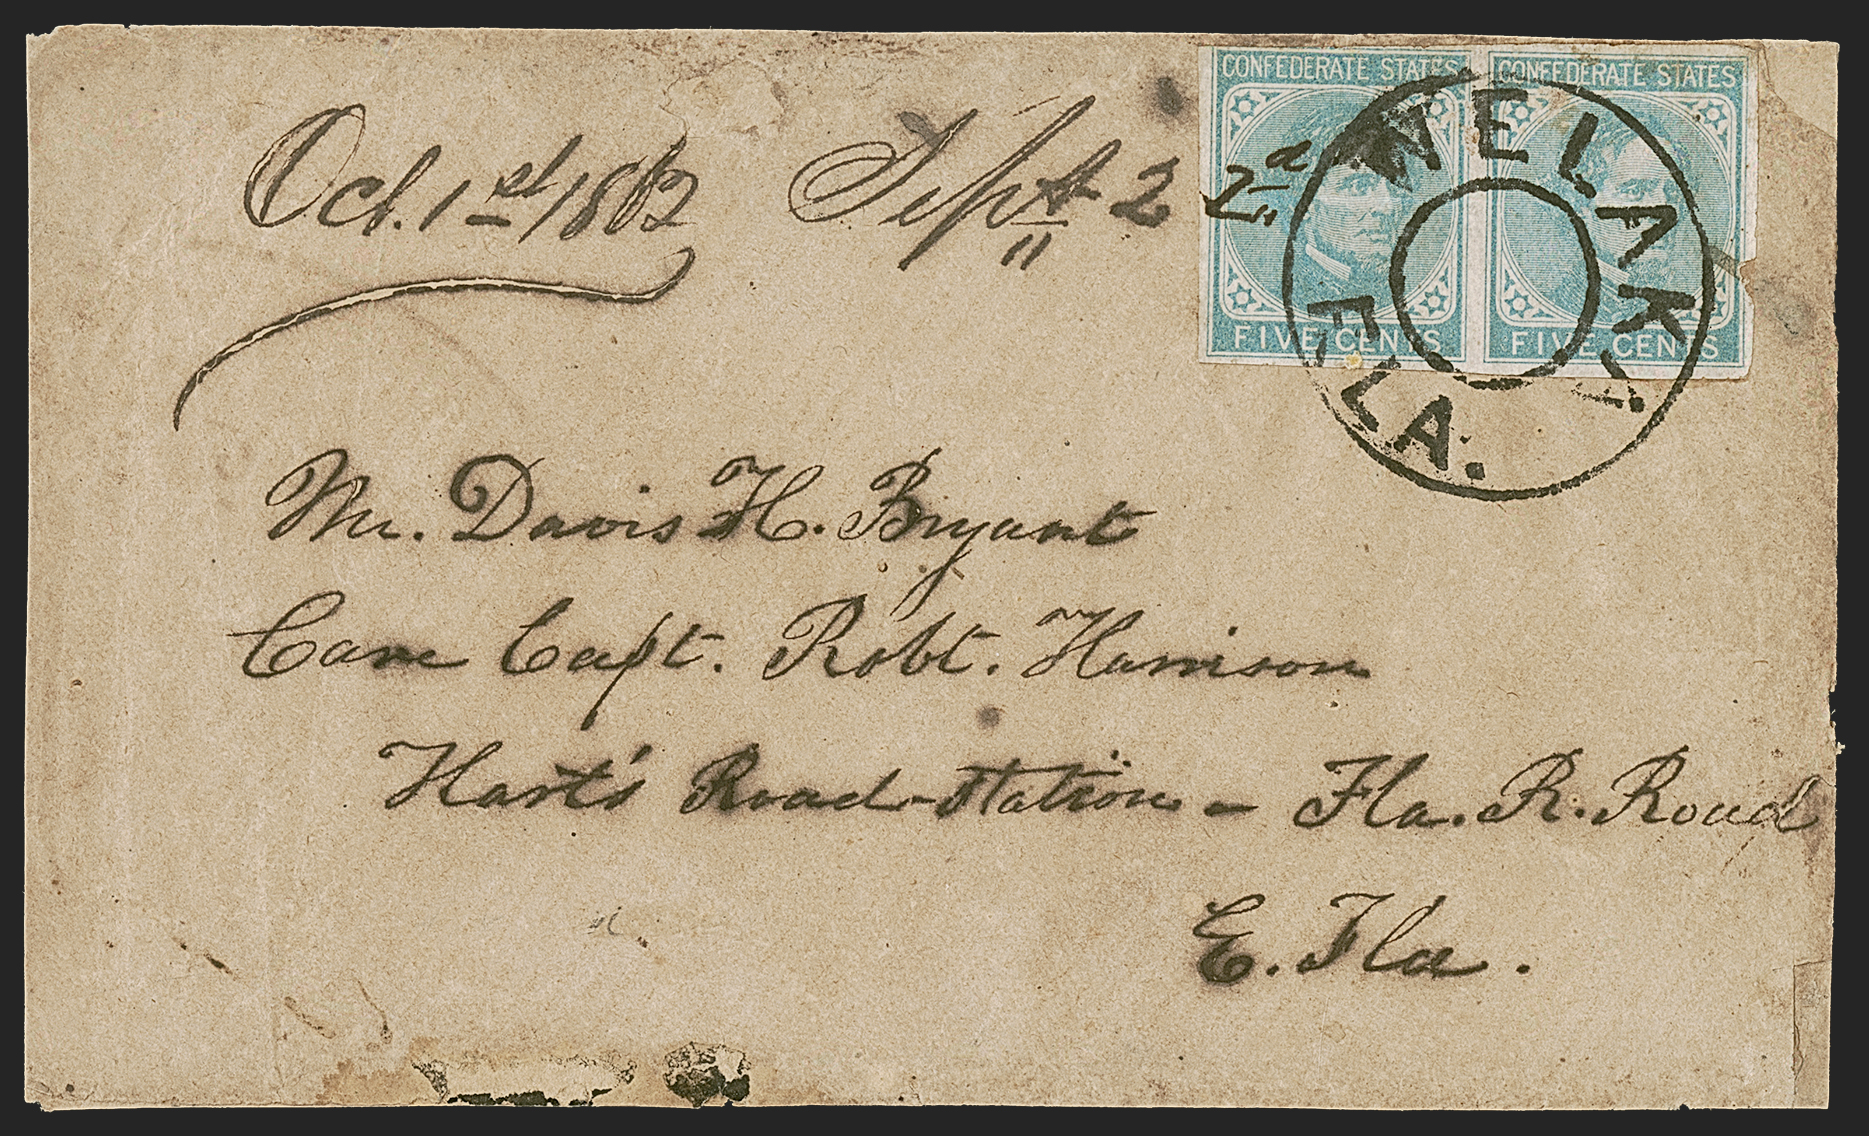 CONFEDERATE STATES CONFEDERATE STATES
Oct. 1st/1862 Sept 2 2d
FIVE CENTS FIVE CENTS
WELAKA FLA.
Mr. Davis H. Bryant
Care Capt. Robt. Harrison
Hart's Road-Station - Fla. R. Road
E. Fla.